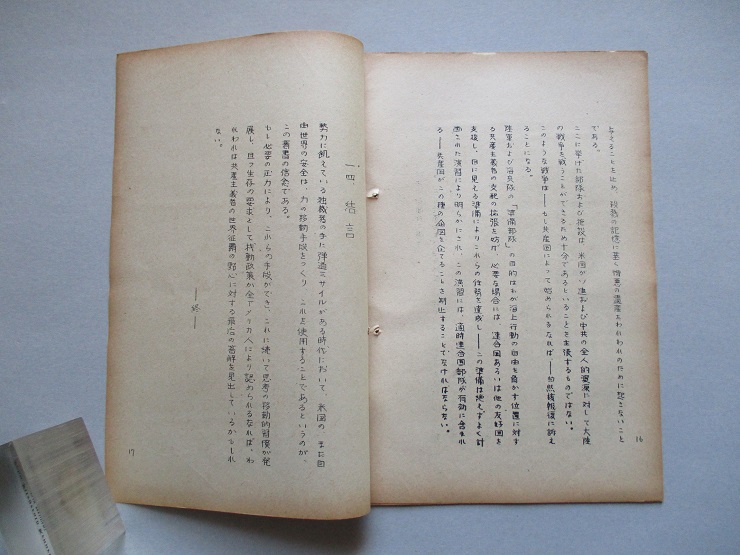 与えることを止め、殺戮の記憶に基く憎悪の遺産をわれわれのために残さないこと
である。
ここに挙げた部隊および施設は、米国がソ連および中共の全人的資源に対して大陸
の戦争を戦うことができるため十分であるということを主張するものではない。
このような戦争は——もし共産国によって始められるなれば——当然核報復に訴え
ることになる。
陸軍および海兵隊の「準備部隊」の目的はわが海上行動の自由を脅かす位置に対す
る共産主義者の支配の拡張を妨げ、必要な場合には、連合国あるいは他の友好国を
支援し、目に見える準備によりこれらの任務を達成し——この準備は絶えずよく計
画された演習により明らかにされ、この演習には、適時連合国部隊が有効に含まれ
る——共産国がこの種の企図を企てることを抑止することでなければならない。
16
一四 結言
勢力に飢えている独裁者の手に弾道ミサイルがある時代において、米国の、また自
由世界の安全は、力の移動手段をつくり、これを使用することであるというのが、
この著書の信念である。
もし必要の圧力により、これらの手段ができ、これに続いて思考の移動的習慣が発
展し、且つ生存の要求として機動政策が全アメリカ人により認められるなれば、わ
れわれは共産主義者の世界征覇の野心に対する最后の答解を見出しているかもしれ
ない。
——終——
17